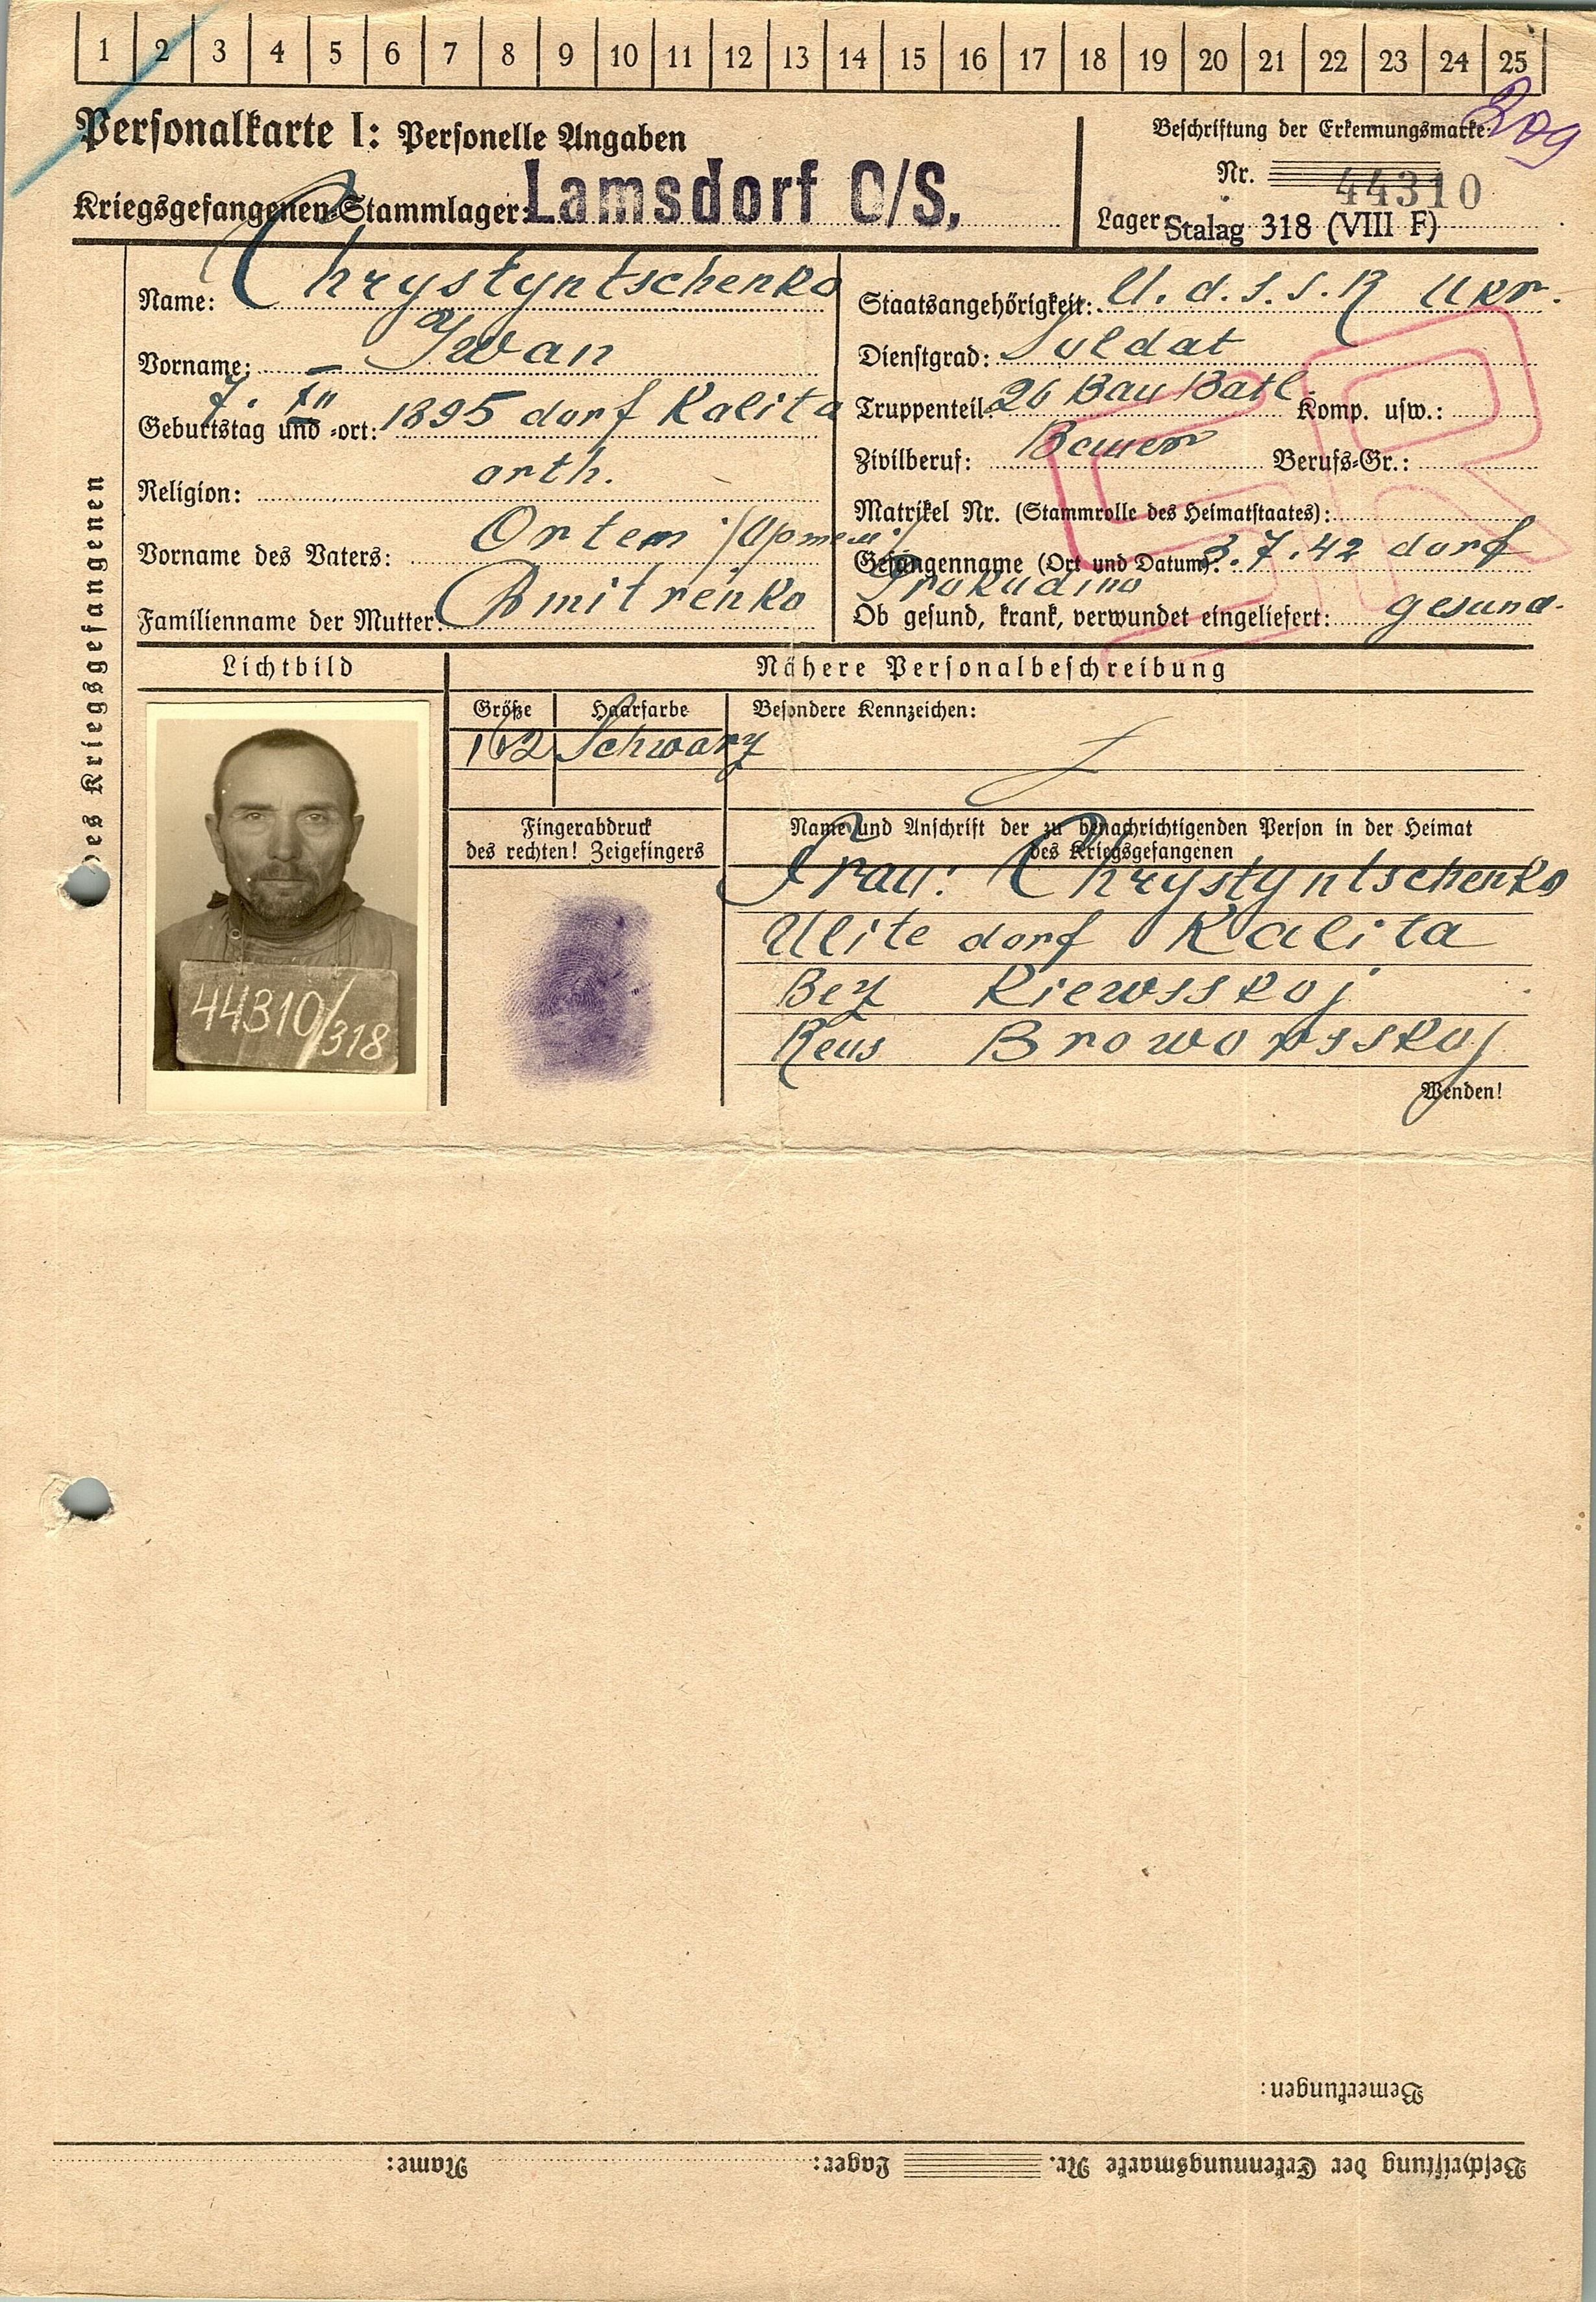 1 2 3 4 5 6 7 8 9 10 11 12 13 14 15 16 17 18 19 20 21 22 23 24 25
Personalkarte I: Personelle Angaben
Kriegsgefangenen-Stammlager: Lamsdorf O/S,
Beschriftung der Erkennungsmarke:
Nr. 44310
Lager: Stalag 318 (VIII F)
des Kriegsgefangenen
Name: Chrystyntschenko
Vorname: Iwan
Geburtstag und -ort: 7. XII 1895 dorf Kalita
Religion: orth.
Vorname des Vaters: Ortem
Familienname der Mutter: Dmitrenko
Staatsangehörigkeit: U.d.S.S.R Ukr.
Dienstgrad: Soldat
Truppenteil: 26 Bau Batl. Komp. usw.:
Zivilberuf: Bauer Berufs-Gr.:
Matrikel Nr. (Stammrolle des Heimatstaates):
Gefangennahme (Ort und Datum): 3.7.42 dorf
Prokudino
Ob gesund, krank, verwundet eingeliefert: gesund.
Lichtbild
44310/318
Nähere Personalbeschreibung
Größe Haarfarbe Besondere Kennzeichen:
162 Schwarz
Fingerabdruck
des rechten! Zeigefingers
Name und Anschrift der zu benachrichtigenden Person in der Heimat
des Kriegsgefangenen
Frau: Chrystyntschenko
Ulite dorf Kalita
Bez Kiewsskoj
Reus Broworsskoj
Wenden!
Bemerkungen:
Beschriftung der Erkennungsmarke Nr. Lager: Name: